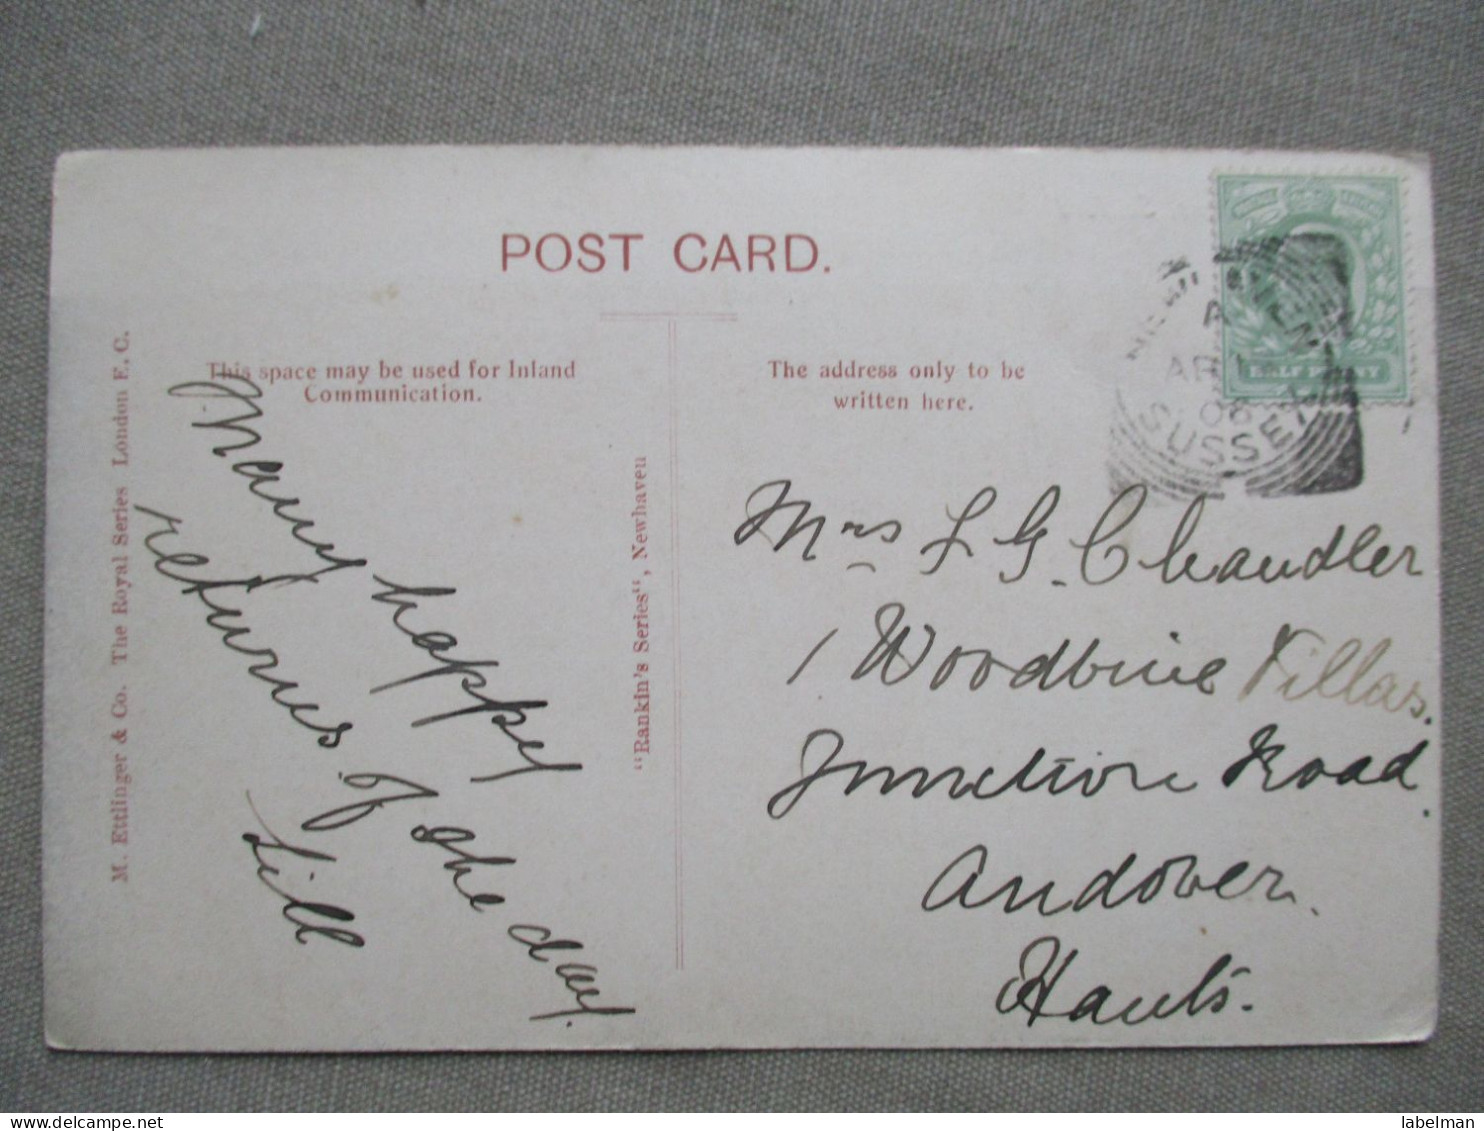 POST CARD.
This space may be used for Inland
Communication.
The address only to be
written here.
M. Ettlinger & Co. The Royal Series London E. C.
"Rankin's Series", Newhaven
Many happy
returns of the day.
Lill
Mrs L G Chandler
1 Woodbine Villas.
Junction Road.
Andover.
Hants.
HALF PENNY
AP
06
SUSSEX
delcampe.net
labelman